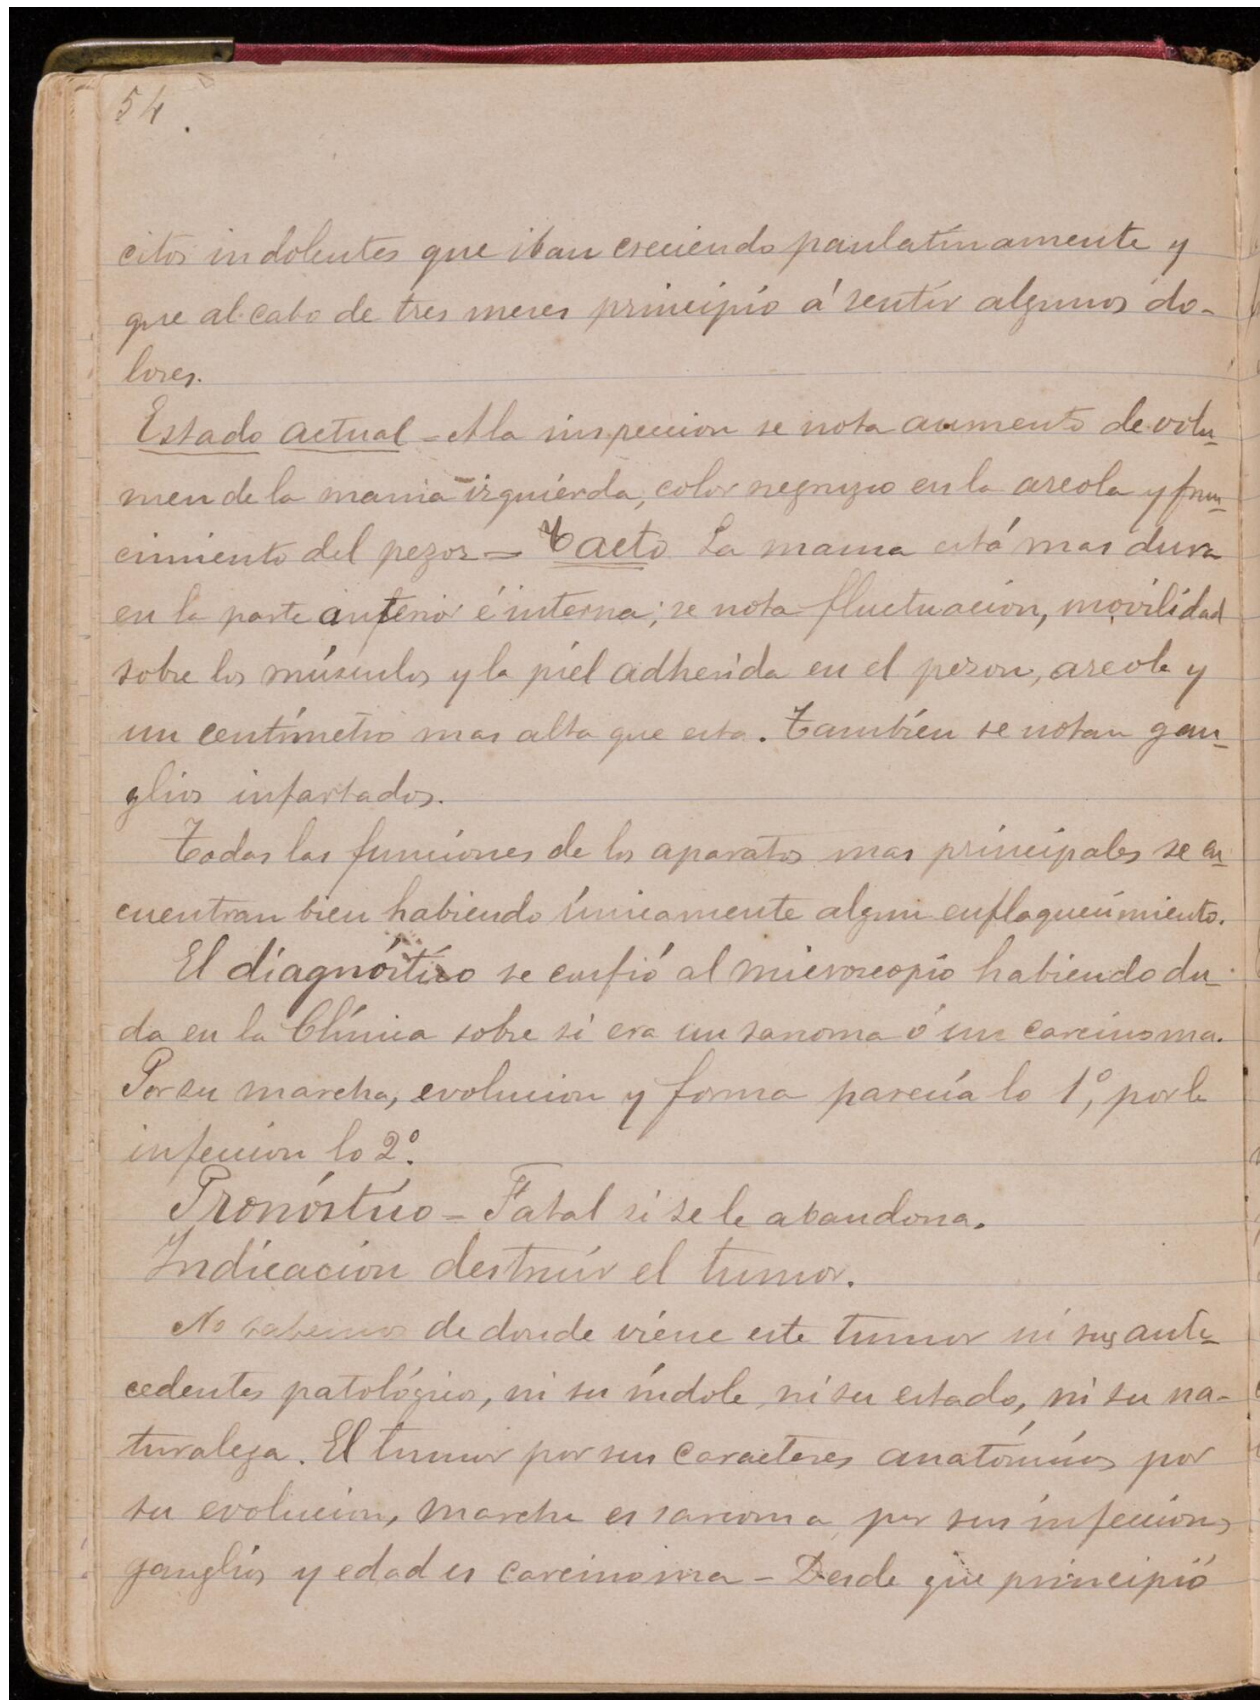 54.
citos indolentes que iban creciendo paulatinamente y
que al cabo de tres meses principio á sentir algunos do-
lores.
Estado actual - A la inspeccion se nota aumento de volu-
men de la mama izquierda, color negruzco en la areola y frun-
cimiento del pezon = Tacto La mama está mas dura
en la parte anterior é interna; se nota fluctuacion, movilidad
sobre los músculos y la piel adherida en el pezon, areola y
un centímetro mas alta que esta. También se notan gan-
glios infartados.
Todas las funciones de los aparatos mas principales se en-
cuentran bien habiendo únicamente algun enflaquecimiento.
El diagnóstico se confió al microscopio habiendo du-
da en la Clínica sobre si era un sarcoma ó un carcinoma.
Por su marcha, evolucion y forma parecía lo 1º, por la
infeccion lo 2º.
Pronóstico - Fatal si se le abandona.
Indicacion destruir el tumor.
No sabemos de donde viene este tumor ni sus ante-
cedentes patológicos, ni su índole, ni su estado, ni su na-
turaleza. El tumor por sus caracteres anatómicos por
su evolucion, marcha es sarcoma, por sus infecciones
ganglios y edad es carcinoma - Desde que principió